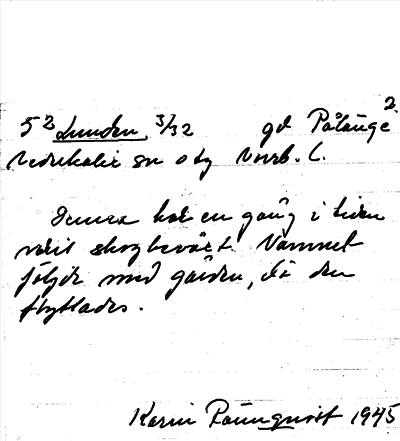 5² Lunden, 3/32 gd Pålänge 2
Nederkalix sn o tg Norrb. l.
Denna har en gång i tiden
varit skogbeväxt. Namnet
följde med gården, då den
flyttades.
Karin Rönnqvist 1945